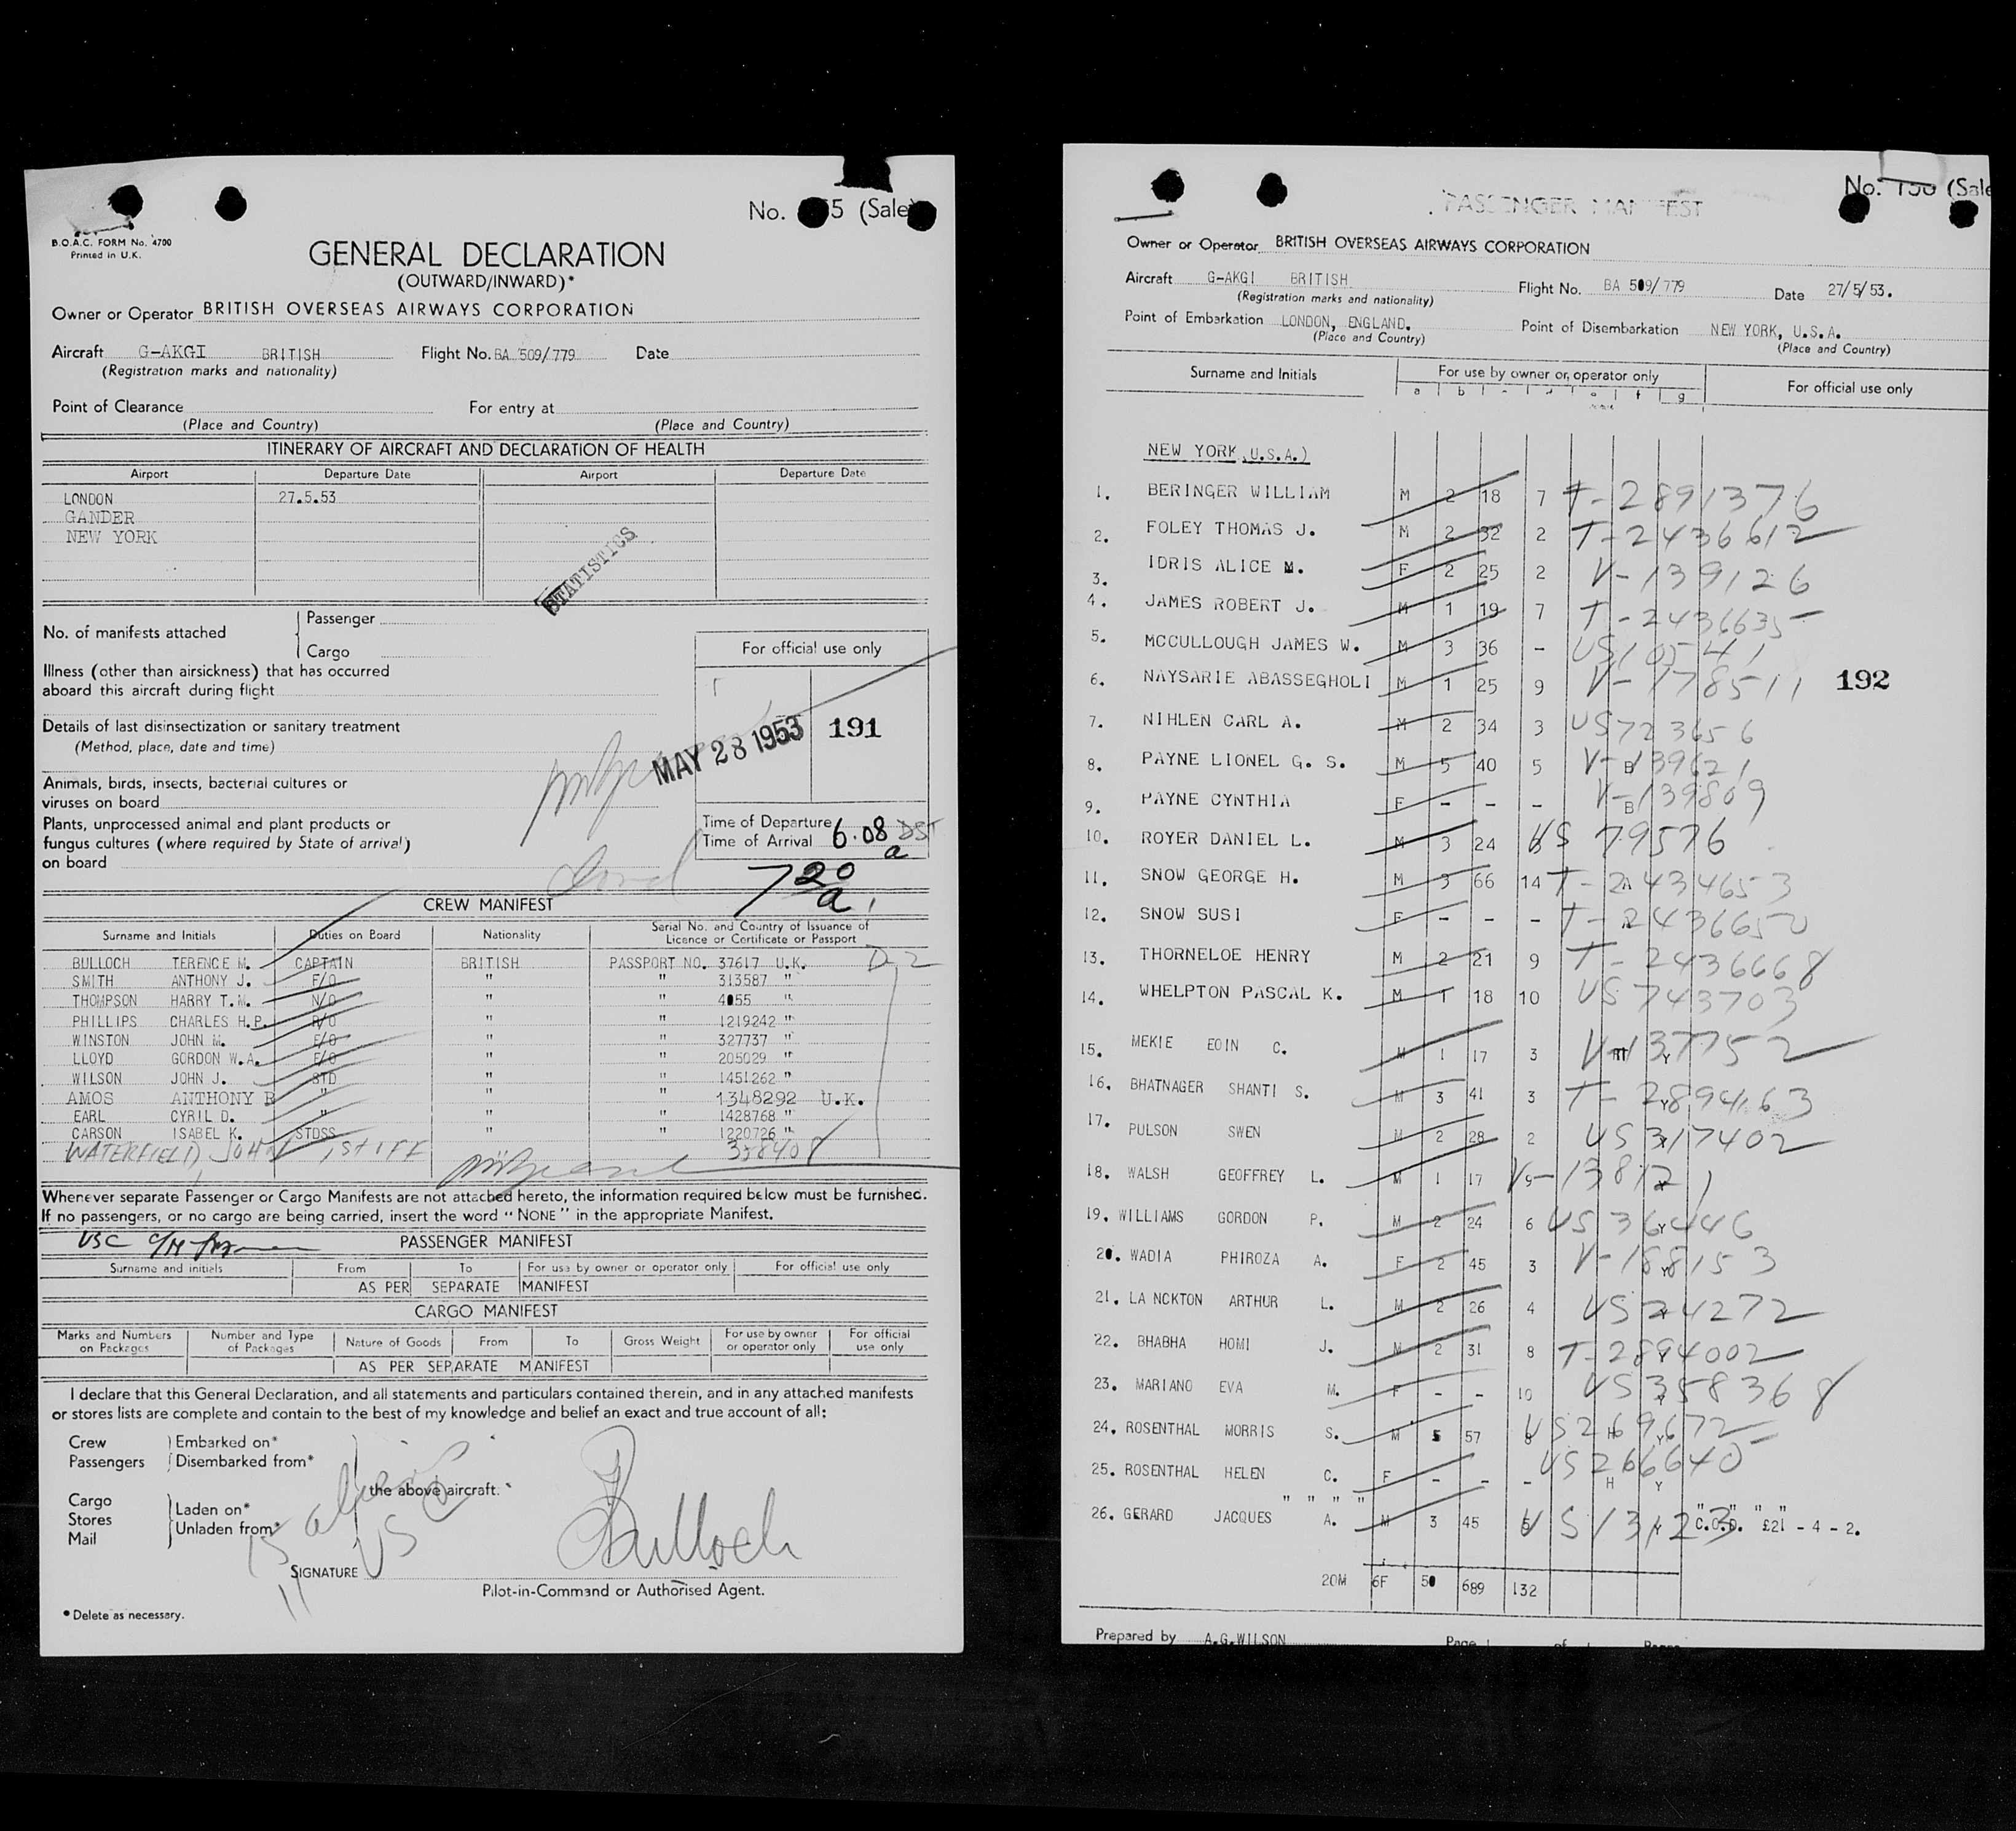 No. 5 (Sale
B.O.A.C. FORM No. 4700
Printed in U.K.
GENERAL DECLARATION
(OUTWARD/INWARD)*
Owner or Operator BRITISH OVERSEAS AIRWAYS CORPORATION
Aircraft G-AKGI BRITISH Flight No. BA 509/779 Date
(Registration marks and nationality)
Point of Clearance For entry at
(Place and Country) (Place and Country)
ITINERARY OF AIRCRAFT AND DECLARATION OF HEALTH
Airport Departure Date Airport Departure Date
LONDON 27.5.53
GANDER
NEW YORK
STATISTICS
No. of manifests attached Passenger
Cargo
For official use only
Illness (other than airsickness) that has occurred
aboard this aircraft during flight
Details of last disinsectization or sanitary treatment
(Method, place, date and time)
MAY 28 1953 191
Animals, birds, insects, bacterial cultures or
viruses on board
Plants, unprocessed animal and plant products or
fungus cultures (where required by State of arrival)
on board
Time of Departure
Time of Arrival 6.08 a DST
7 20 a
CREW MANIFEST
Surname and Initials Duties on Board Nationality Serial No. and Country of Issuance of Licence or Certificate or Passport
BULLOCH TERENCE M. CAPTAIN BRITISH PASSPORT NO. 37617 U.K. D 2
SMITH ANTHONY J. F/O " " 313587 "
THOMPSON HARRY T.M. N/O " " 4055 "
PHILLIPS CHARLES H.P. R/O " " 1219242 "
WINSTON JOHN M. E/O " " 327737 "
LLOYD GORDON W.A. E/O " " 205029 "
WILSON JOHN J. STD " " 1451262 "
AMOS ANTHONY B " " " 1348292 U.K.
EARL CYRIL D. " " " 1428768 "
CARSON ISABEL K. STDSS " " 1220726 "
WATERFIELD, JOHN 358408
Whenever separate Passenger or Cargo Manifests are not attached hereto, the information required below must be furnished.
If no passengers, or no cargo are being carried, insert the word "NONE" in the appropriate Manifest.
PASSENGER MANIFEST
Surname and initials From To For use by owner or operator only For official use only
AS PER SEPARATE MANIFEST
CARGO MANIFEST
Marks and Numbers on Packages Number and Type of Packages Nature of Goods From To Gross Weight For use by owner or operator only For official use only
AS PER SEPARATE MANIFEST
I declare that this General Declaration, and all statements and particulars contained therein, and in any attached manifests
or stores lists are complete and contain to the best of my knowledge and belief an exact and true account of all:
Crew Embarked on*
Passengers Disembarked from*
the above aircraft.
Cargo
Stores Laden on*
Mail Unladen from*
15 aliens
11 USC
Bulloch
SIGNATURE
Pilot-in-Command or Authorised Agent.
* Delete as necessary.
No. (Sale
PASSENGER MANIFEST
Owner or Operator BRITISH OVERSEAS AIRWAYS CORPORATION
Aircraft G-AKGI BRITISH Flight No. BA 509/779 Date 27/5/53.
(Registration marks and nationality)
Point of Embarkation LONDON, ENGLAND. Point of Disembarkation NEW YORK, U.S.A.
(Place and Country) (Place and Country)
Surname and Initials For use by owner or operator only For official use only
a b f g
NEW YORK, U.S.A.)
1. BERINGER WILLIAM M 2 18 7 T-2891376
2. FOLEY THOMAS J. M 2 32 2 T-2436612
3. IDRIS ALICE M. F 2 25 2 V-139126
4. JAMES ROBERT J. M 1 19 7 T-2436635
5. MCCULLOUGH JAMES W. M 3 36 -
6. NAYSARIE ABASSEGHOLI M 1 25 9 V-178511 192
7. NIHLEN CARL A. M 2 34 3 US723656
8. PAYNE LIONEL G. S. M 5 40 5 B V-139621
9. PAYNE CYNTHIA F - - - B V-139809
10. ROYER DANIEL L. M 3 24 US 79576
11. SNOW GEORGE H. M 3 66 14 T-2434653
12. SNOW SUSI F - - - T-2436650
13. THORNELOE HENRY M 2 21 9 T-2436668
14. WHELPTON PASCAL K. M 1 18 10 US 743703
15. MEKIE EOIN C. M 1 17 3 Y V-137752
16. BHATNAGER SHANTI S. M 3 41 3 Y T-2894163
17. PULSON SWEN M 2 28 2 US 317402
18. WALSH GEOFFREY L. M 1 17 9 V-138121
19. WILLIAMS GORDON P. M 2 24 6 Y US 36446
20. WADIA PHIROZA A. F 2 45 3 Y V-188153
21. LANCKTON ARTHUR L. M 2 26 4 US 24272
22. BHABHA HOMI J. M 2 31 8 Y T-2894002
23. MARIANO EVA M. F - - 10 US 358368
24. ROSENTHAL MORRIS S. M 5 57 8 H Y US 269672
25. ROSENTHAL HELEN C. F - - - H Y US 266640
" " " " " " " "
26. GERARD JACQUES A. M 3 45 5 Y US 13123 C.O.D. £21 - 4 - 2.
20M 6F 50 689 132
Prepared by A.G.WILSON Page of Pages